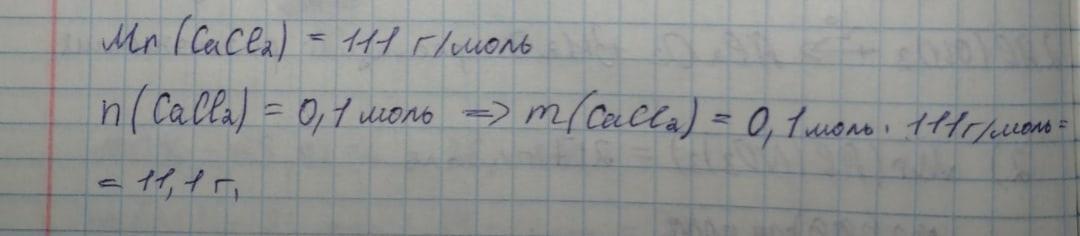 Mr (CaCl₂) = 111 г/моль
n (CaCl₂) = 0,1 моль => m (CaCl₂) = 0,1 моль · 111 г/моль =
= 11,1 г,